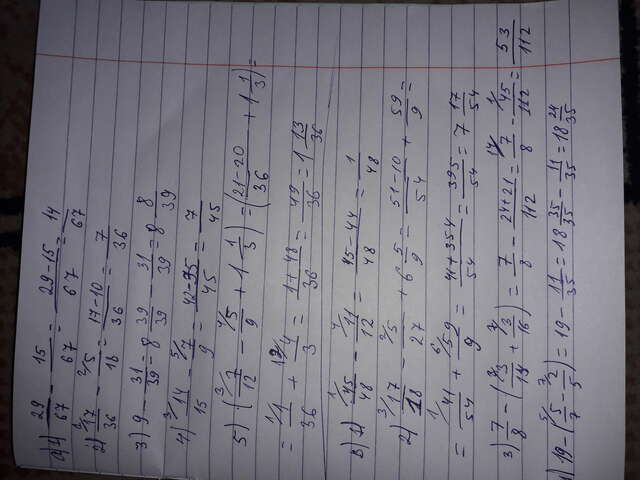 а) 1) 29/67 - 15/67 = 29-15/67 = 14/67
2) 17/36 - 5/18 = 17-10/36 = 7/36
3) 9 - 31/39 = 8 39/39 - 31/39 = 8 8/39
4) 14/15 - 7/9 = 42-35/45 = 7/45
5) (7/12 - 5/9 + 1 1/3) = (21-20/36 + 1 1/3) =
= 1/36 + 4/3 = 1+48/36 = 49/36 = 1 13/36
в) 1) 45/48 - 11/12 = 45-44/48 = 1/48
2) 17/18 - 5/27 + 6 5/9 = 51-10/54 + 59/9 =
= 41/54 + 59/9 = 41+354/54 = 395/54 = 7 17/54
3) 7/8 - (3/14 + 3/16) = 7/8 - 24+21/112 = 7/8 - 45/112 = 53/112
19 - (5/7 - 2/5) = 19 - 11/35 = 18 35/35 - 11/35 = 18 24/35